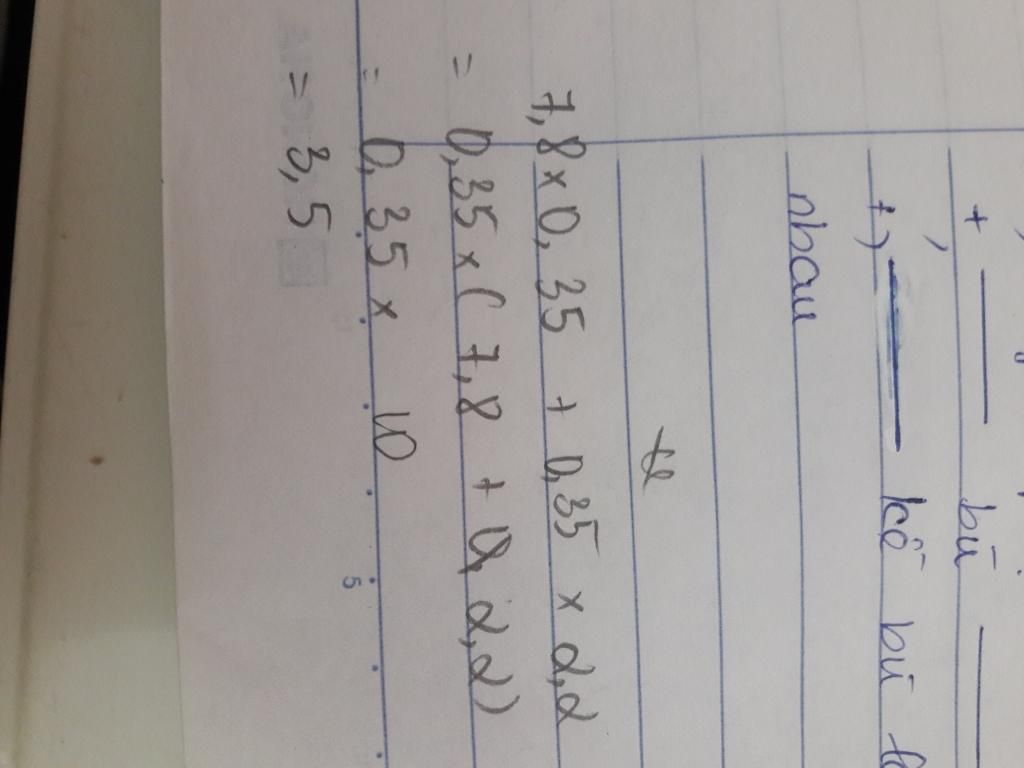 + bù
+) kề bù
nhau
7,8 x 0,35 + 0,35 x 2,2
= 0,35 x ( 7,8 + 2,2)
= 0,35 x 10
= 3,5
5